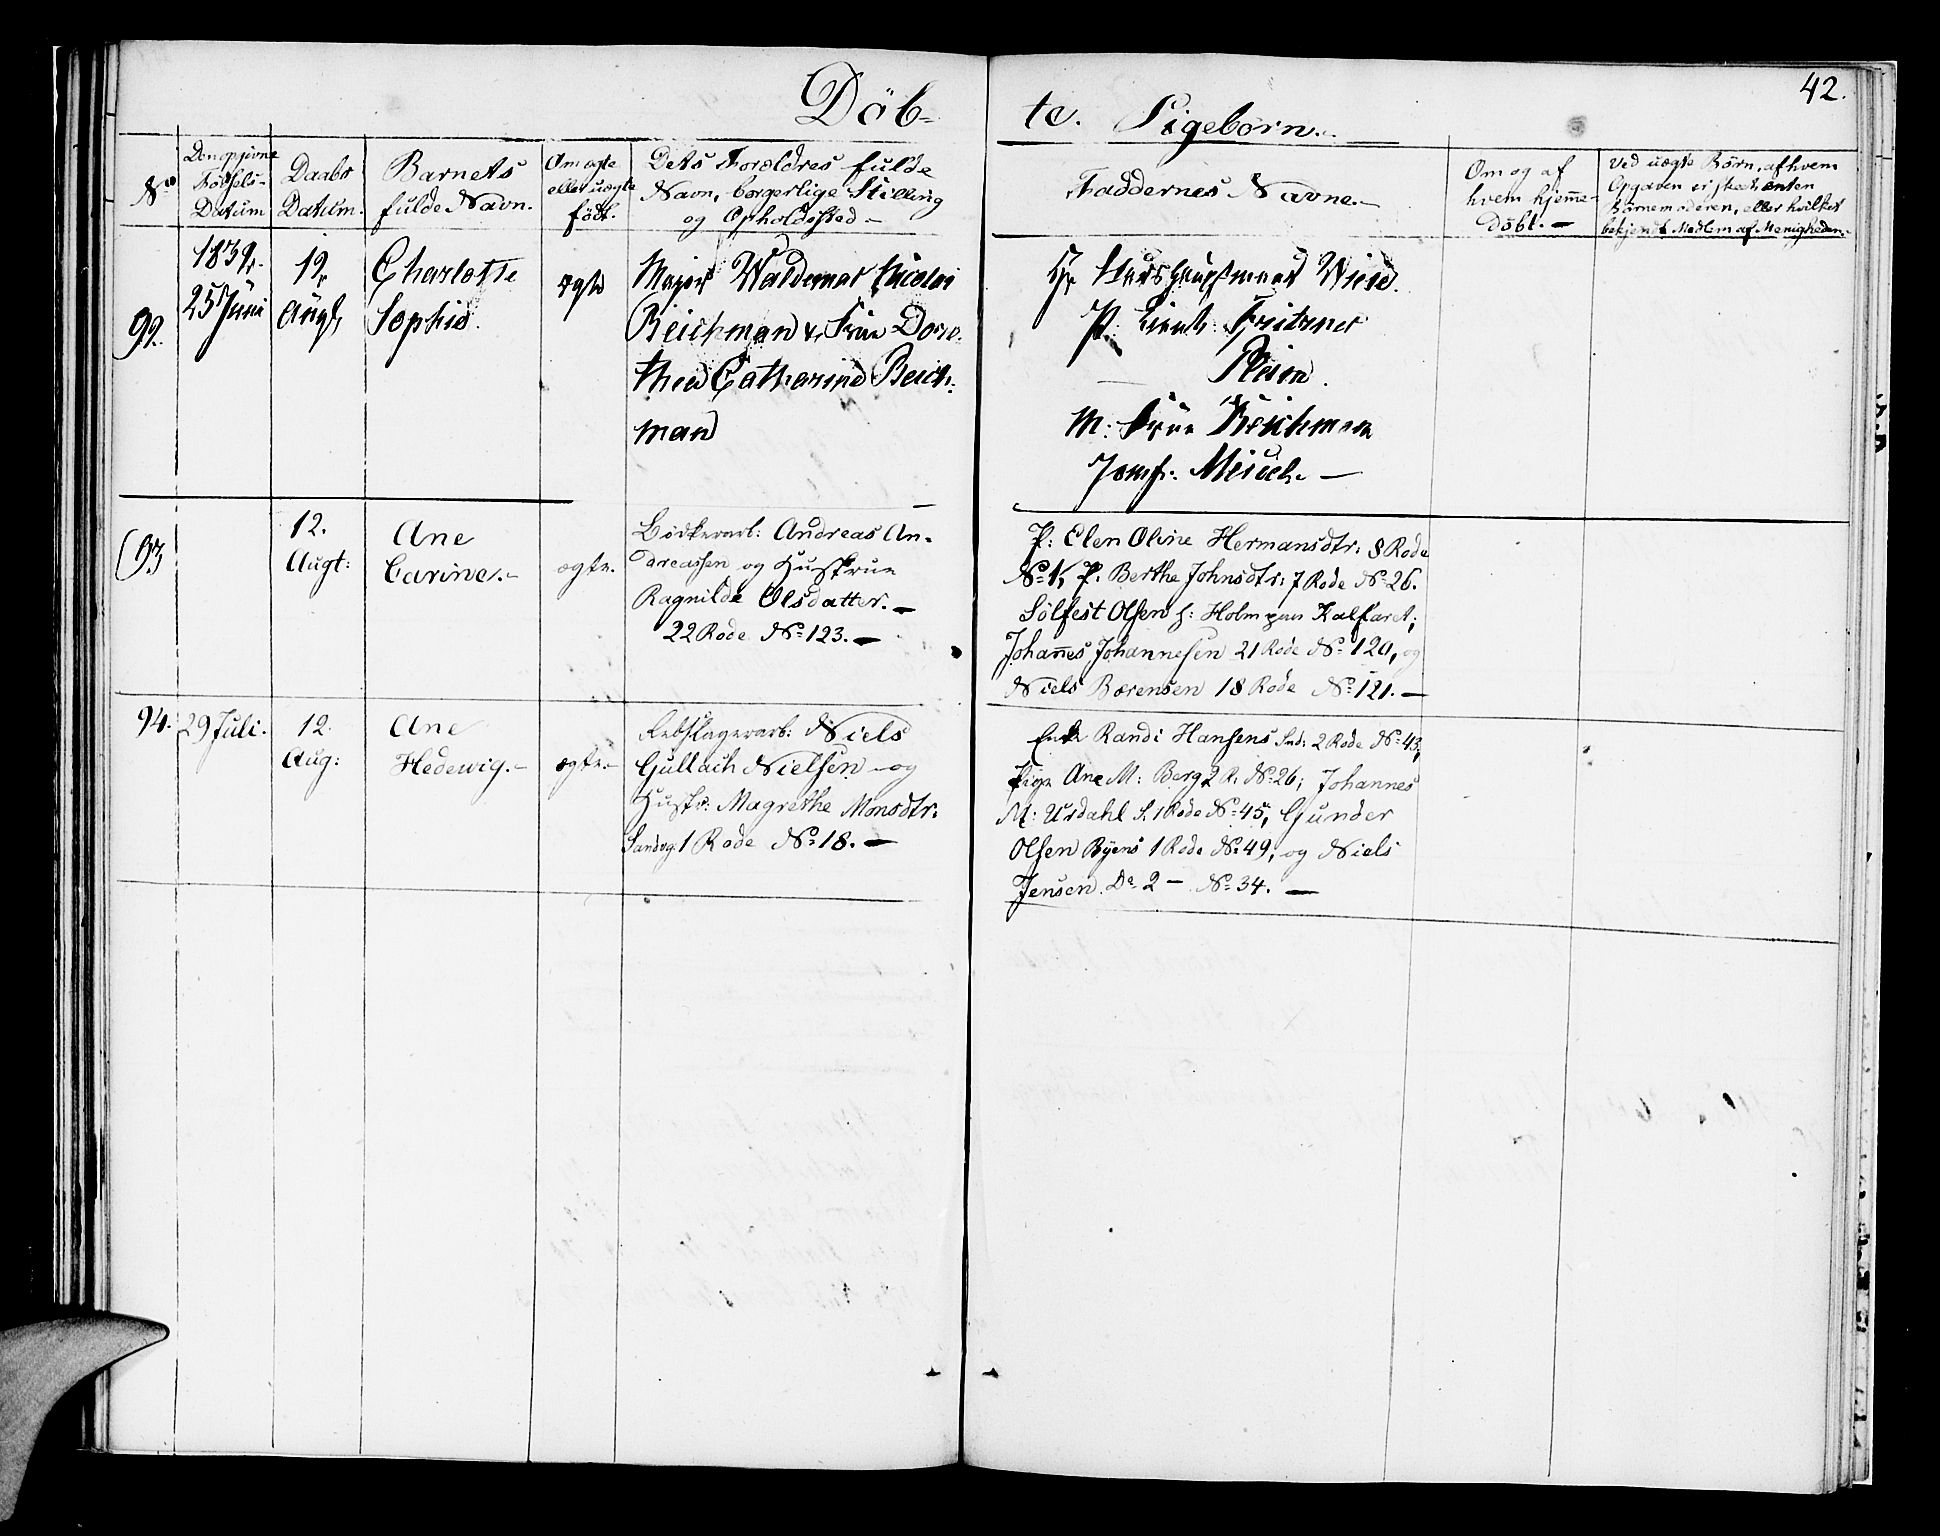 42.
Döb- te. Pigebörn.-
No
Den opgivne Födsels- Datum
Daabs Datum.
Barnets fulde Navn.
Om ægte eller uægte födt.
Dets Forældres fulde Navn, borgerlige Stilling og Opholdssted -
Faddernes Navne.-
Om og af hvem hjem̄e- döbt. -
Ved uægte Börn, af hvem Opgaven er skeet, enten Barnemoderen, eller hvilket bekjendt Medlem af Menigheden.-
92.
1839.
25 Juni
12
Augt,
Charlotte
Sophie.
ægte
Major Waldemar Nicolai
Beichman & Frue Doro-
thea Catharine Beich-
man
Hr
Wiese.
P. Lieut: Fritzner
M: Frue Beichman
Jomf:
93
12.
Augt:
Ane
Carine.-
ægte.
Bödkerarb: Andreas An-
dreassen og Hustrue
Ragnilde Olsdatter. -
22 Rode No 123. -
P: Elen Oline Hermansdtr: 8 Rode
No 1, P. Berthe Johnsdtr: 7 Rode No 26.
Sölfest Olsen Kalfaret;
Johan̄es Johannesen 21 Rode No 120, og
Niels Bærensen 18 Rode No 121. -
94.
29 Juli.
12.
Aug:
Ane
Hedewig.-
ægte.-
Rebslagerarb: Niels
Gullach Nielsen og
Hustr: Magrethe Monsdtr:
Sandvg: 1 Rode No 18. -
Enke Randi Hansens Snd: 2 Rode No 43,
Pige Ane M: Berg 2 R. No 26; Johannes
M: Urdahl S. 1 Rode No 45, Gunder
Olsen Byens 1 Rode No 49, og Niels
Jensen. Do 2 - No 34. -